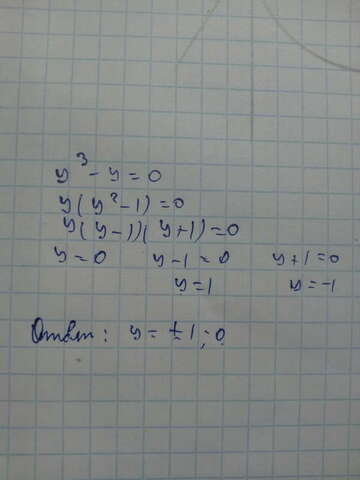 y³ - y = 0
y(y²-1)=0
y(y-1)(y+1)=0
y=0 y-1=0 y+1=0
y=1 y=-1
Ответ: y=±1; 0